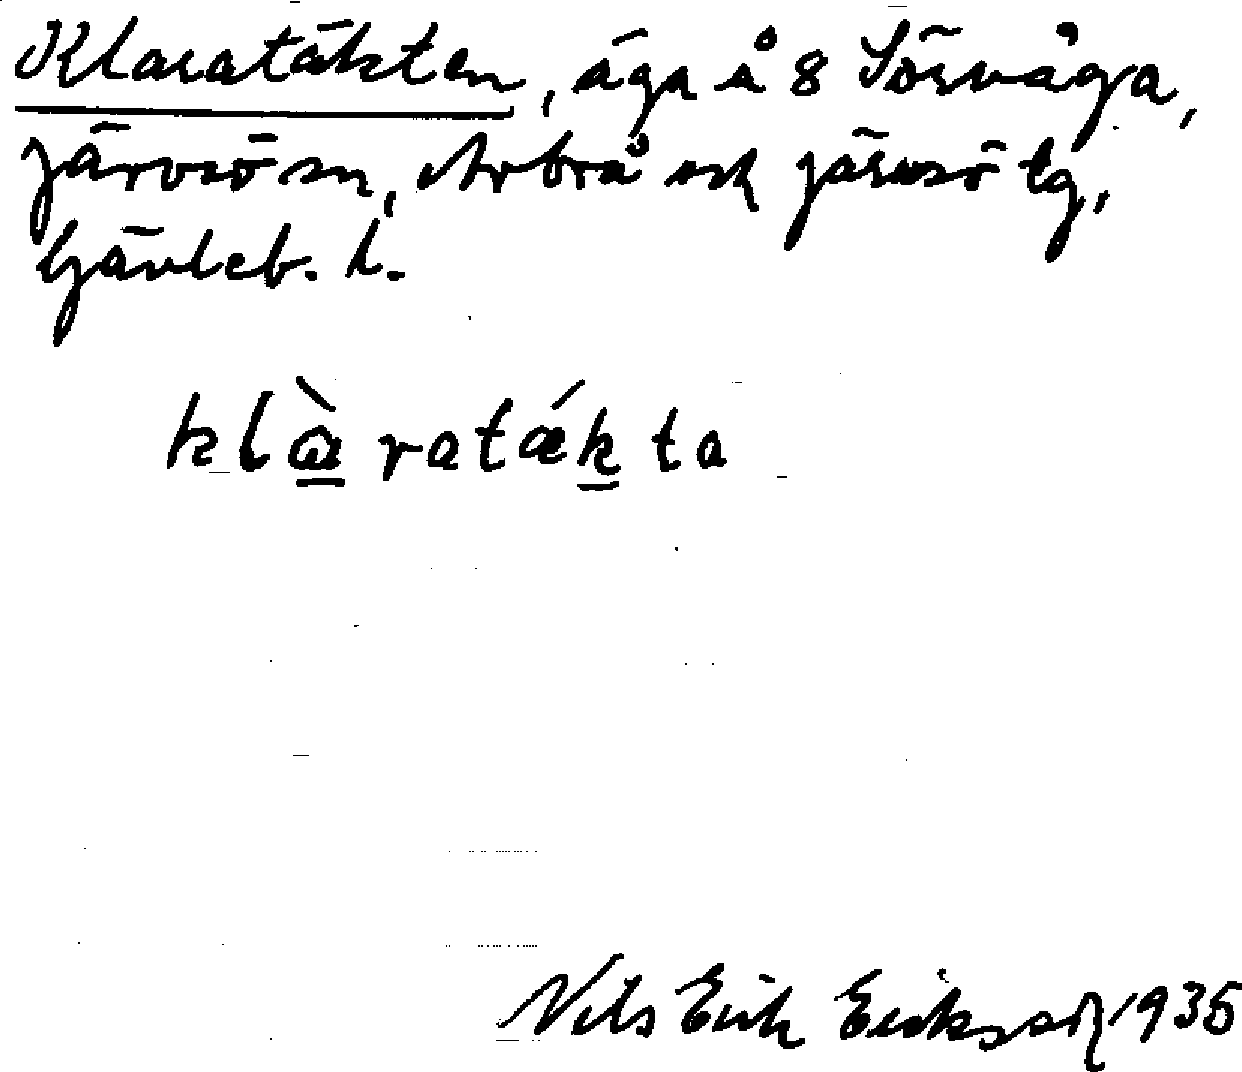 Klaratäkten, äga å 8 Sörvåga,
Järvsö sn, Arbrå och Järvsö tg,
Gävleb. l.
klàratǽkta
Nils Erik Eriksson 1935